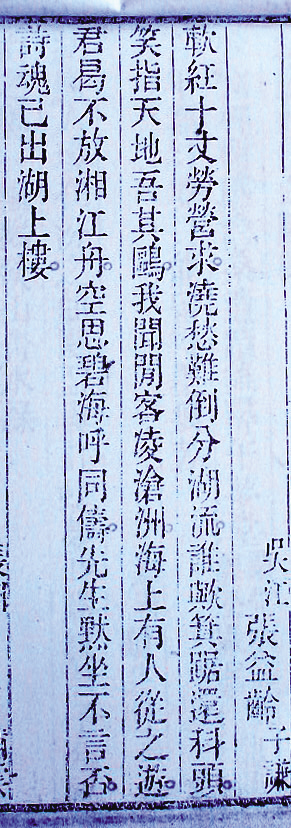 吳江張益齡子謙
軟紅十丈勞營求澆愁難倒分湖流誰歟箕踞還科頭
笑指天地吾其鷗我聞閒客凌滄洲海上有人從之遊
君曷不放湘江舟空思碧海呼同儔先生默坐不言否
詩魂已出湖上樓